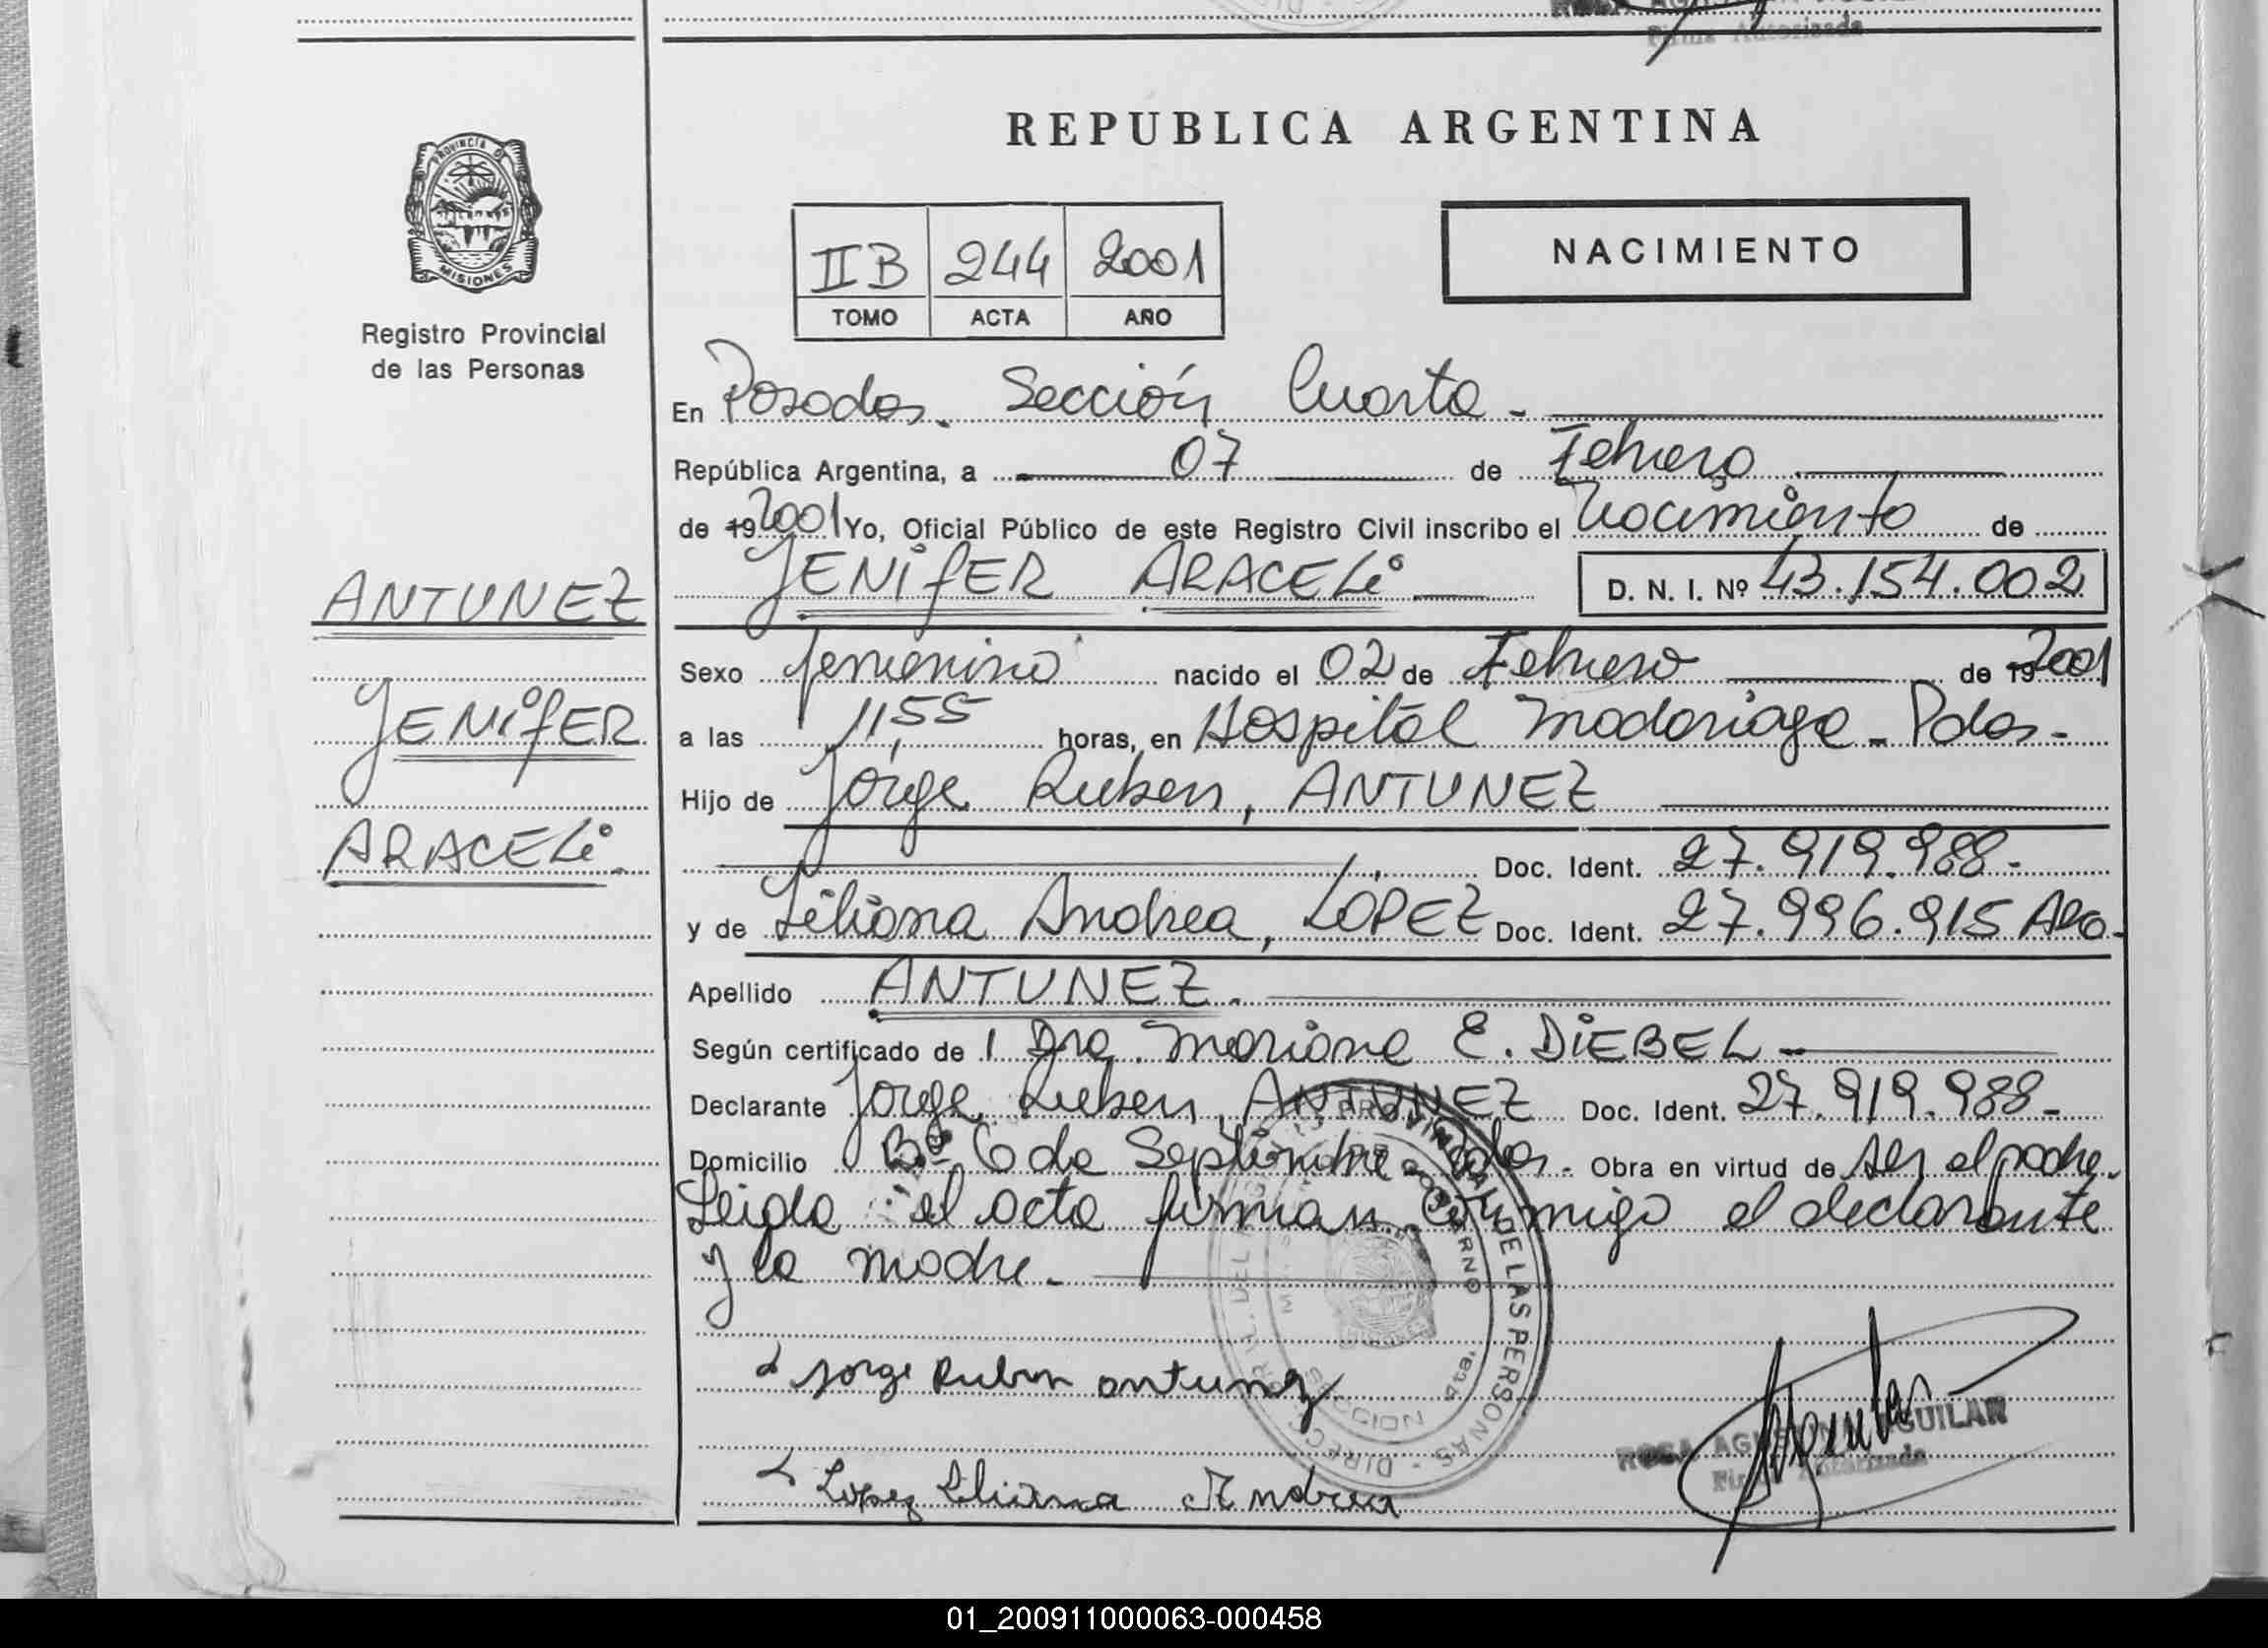 Firma Autorizada
PROVINCIA DE
MISIONES
Registro Provincial
de las Personas
ANTUNEZ
JENIFER
ARACELi.
REPUBLICA ARGENTINA
IIB 244 2001
TOMO ACTA AÑO
NACIMIENTO
En Posadas. Sección Cuarta.-
República Argentina, a 07 de Febrero
de 19 2001 Yo, Oficial Público de este Registro Civil inscribo el Nacimiento de
JENIFER ARACELi D. N. I. Nº 43.154.002
Sexo femenino nacido el 02 de Febrero de 19 2001
a las 11,55 horas, en Hospital Madariaga - Pdas.-
Hijo de Jorge Ruben, ANTUNEZ
Doc. Ident. 27.919.988.-
y de Liliana Andrea, LOPEZ Doc. Ident. 27.996.915
Apellido ANTUNEZ.
Según certificado de 1 Dra. Mariana E. DiEBEL.-
Declarante Jorge Ruben, ANTUNEZ Doc. Ident. 27.919.988.-
Domicilio Bº 6 de Septiembre - Pdas.- Obra en virtud de ser el padre.
Leida el acta firman conmigo el declarante
y la madre.-
Jorge Ruben antunez
Lopez Liliana Andrea
ROSA AGUILAR
Firma Autorizada
DE LAS PERSONAS
SECCION 4ta.
01_200911000063-000458